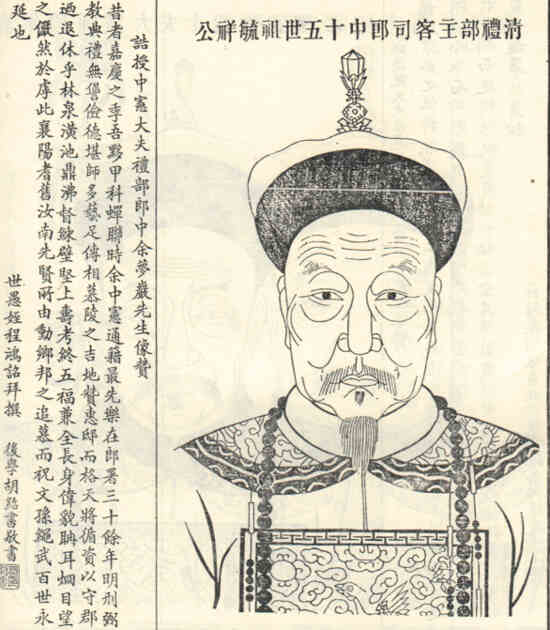 清禮部主客司郎中十五世祖毓祥公
誥授中憲大夫禮部郎中余夢巖先生像贊
昔者嘉慶之季吾黟甲科蟬聯時余中憲通籍最先樂在郎署三十餘年明刑弼
教典禮無諐儉德堪師多藝足傳相慕陵之吉地贊惠邸而格天將備資以守郡
迺退休乎林泉潢池鼎沸督練壁堅上壽考終五福兼全長身偉貌聃耳烱目望
之儼然於虖此襄陽耆舊汝南先賢所由動鄉邦之追慕而祝文孫繩武百世永
延也
世愚姪程鴻詔拜撰
後學胡書敬書